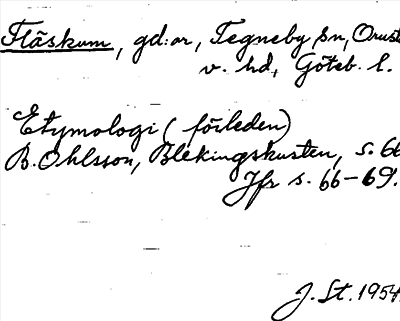 Fläskum, gd:ar, Tegneby sn, Orust
v. hd, Göteb. l.
Etymologi (förleden)
B. Ohlsson, Blekingskusten, s. 66
Jfr s. 66-69.
J. St. 1954.